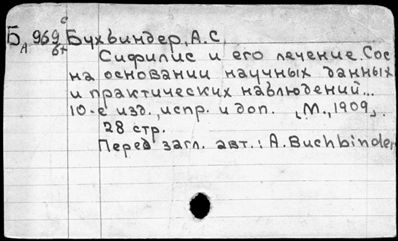 с
Б 969 Бухвиндер, А.С.
А бт
Сифилис и его лечение. Сос
на основании научных данных
и практических наблюдений...
10-е изд., испр. и доп. М., 1909.
28 стр.
Перед загл. авт.: A. Buchbinder